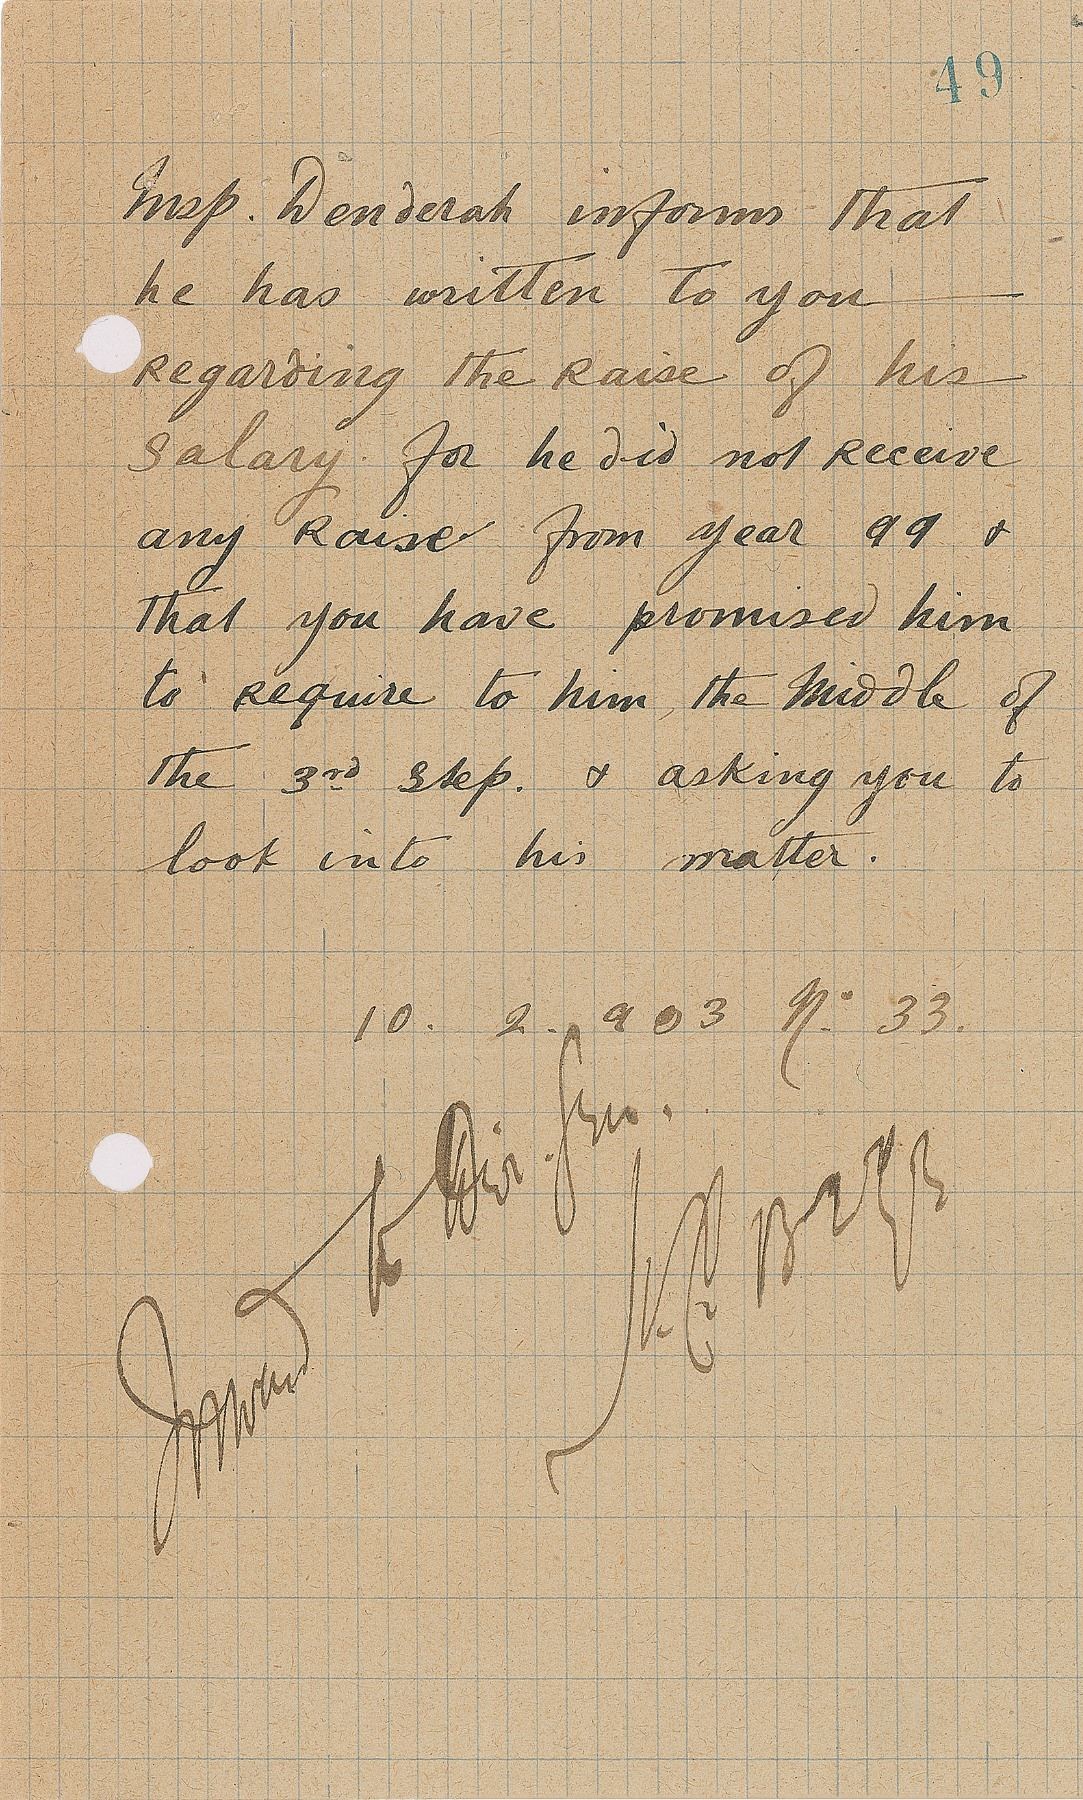 49
Insp. Denderah informs that
he has written to you
regarding the raise of his
salary. for he did not receive
any raise from year 99 &
that you have promised him
to require to him, the Middle of
the 3rd step. & asking you to
look into his matter.
10. 2. 903 N° 33.
Forward to Dir. Gen.